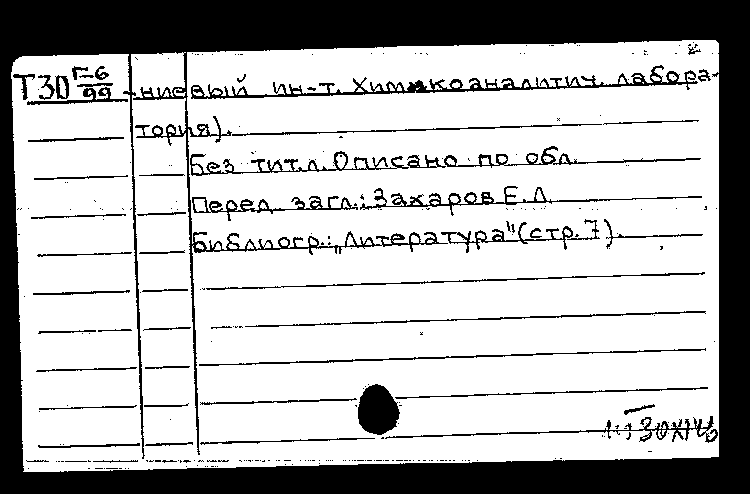 Т30 Г-6/99 -ниевый ин-т. Химикоаналитич. лабора-
тория).
Без тит.л. Описано по обл.
Перед загл.: Захаров Е.Л.
Библиогр.: „Литература" (стр. 7).